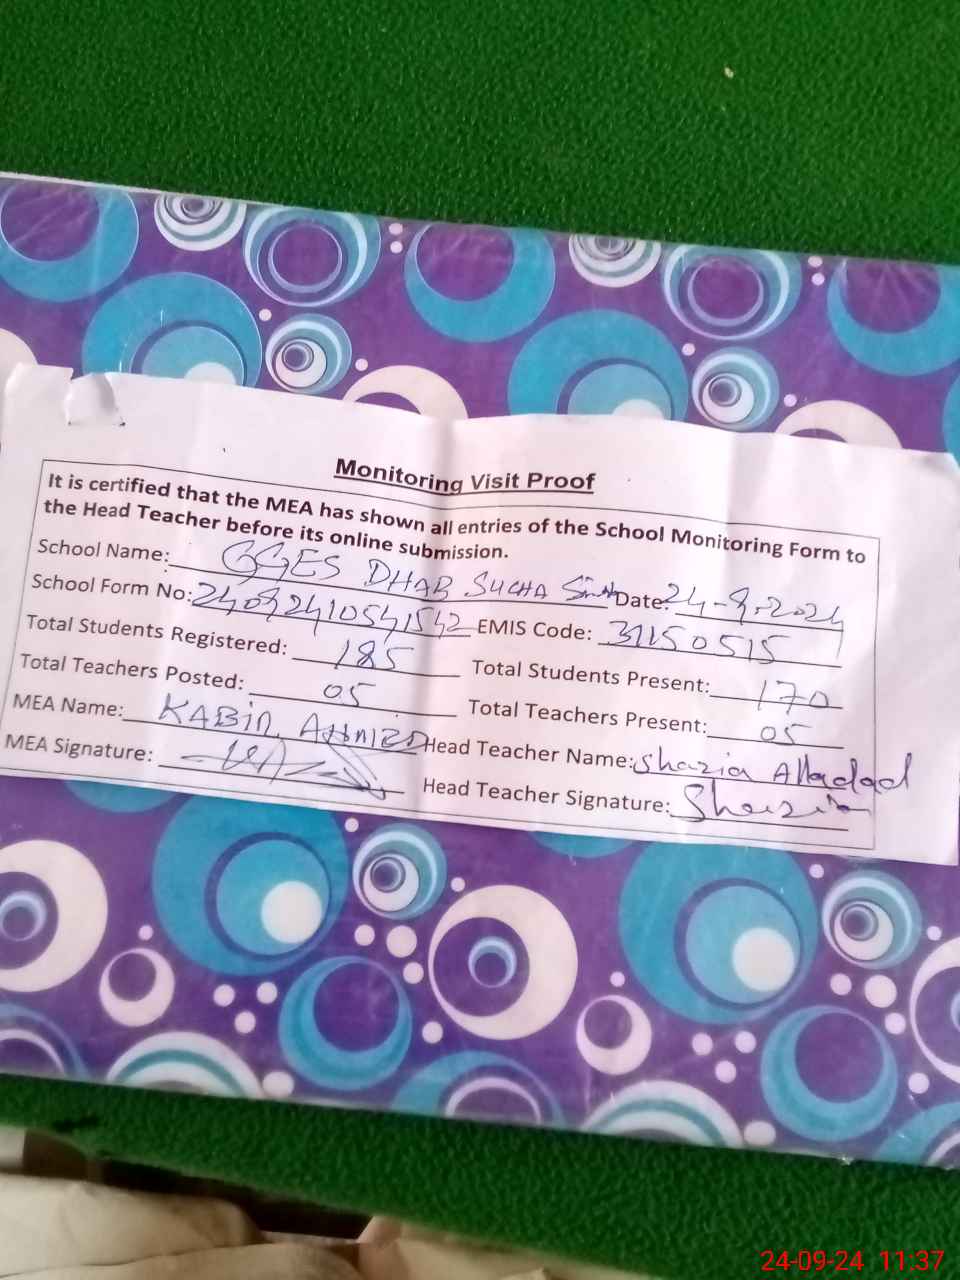 Monitoring Visit Proof
It is certified that the MEA has shown all entries of the School Monitoring Form to
the Head Teacher before its online submission.
School Name: GGES DHAB SUCHA Singh Date: 24-9-2024
School Form No: EMIS Code: 31150515
Total Students Registered: 185 Total Students Present: 170
Total Teachers Posted: 05 Total Teachers Present: 05
MEA Name: KABIR AHMED Head Teacher Name: Shazia Allahdad
MEA Signature: Head Teacher Signature: Shazia
24-09-24 11:37